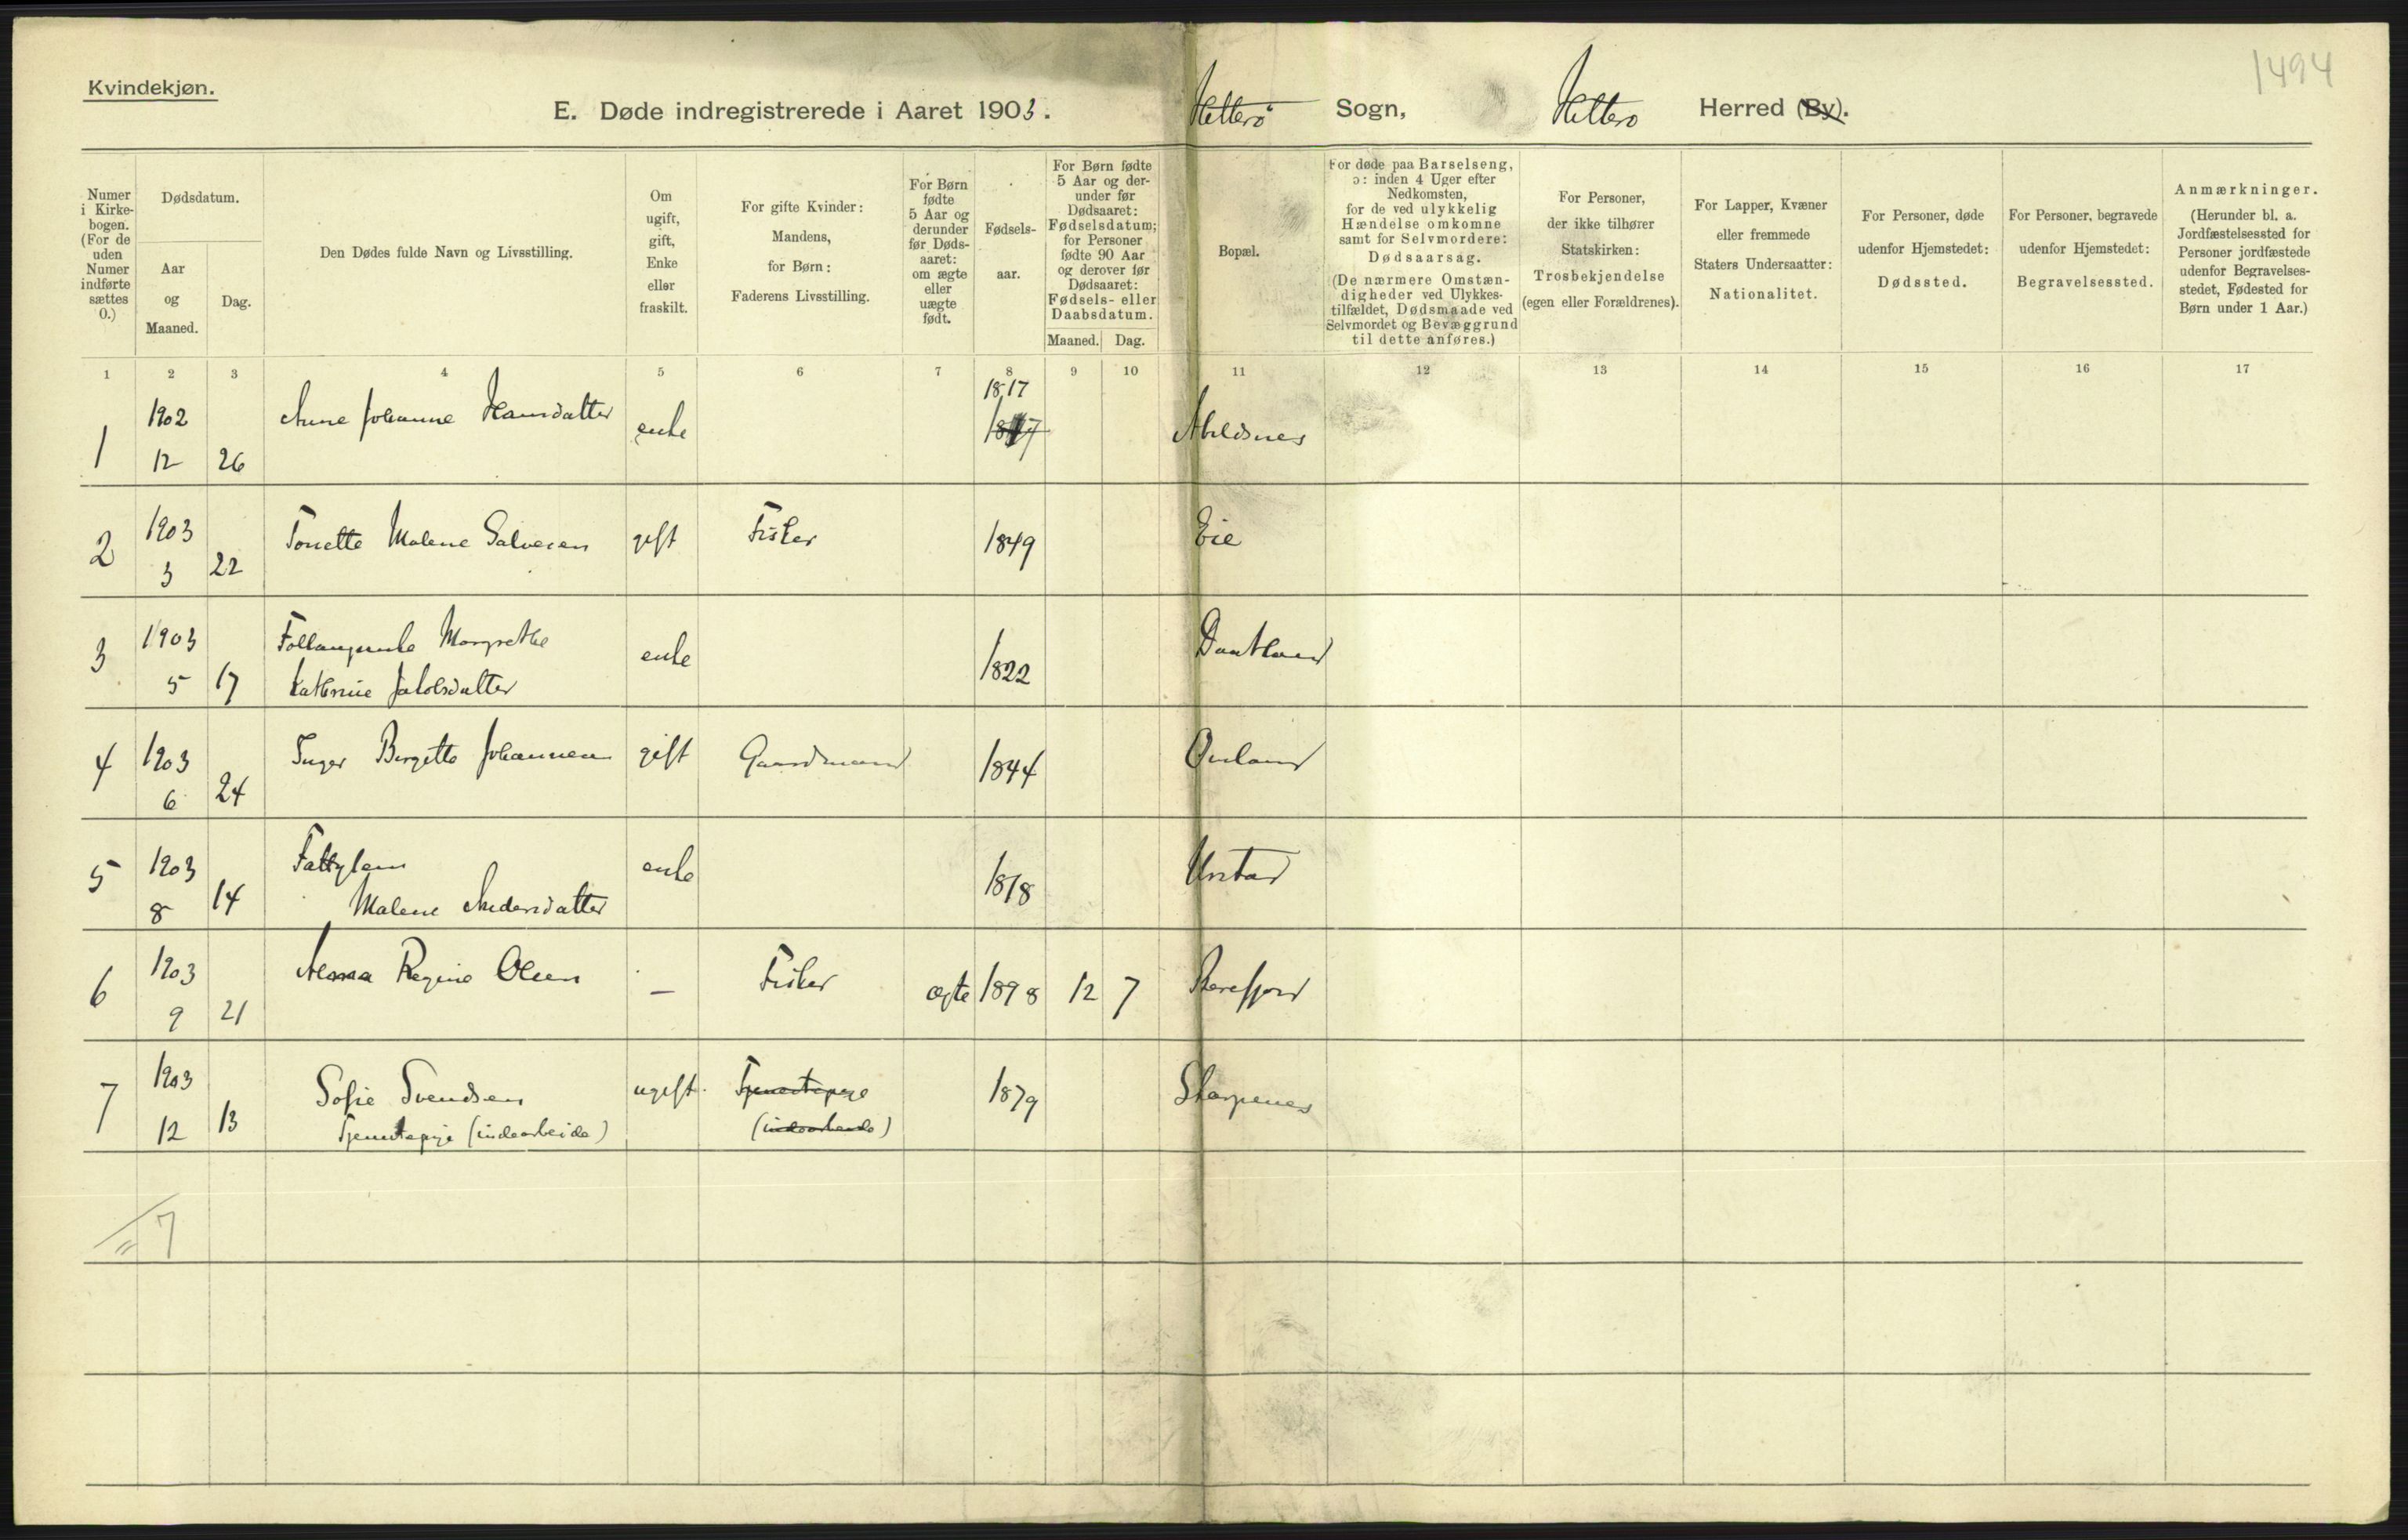 1494
Kvindekjøn.
E. Døde indregistrerede i Aaret 1903. Hitterø Sogn, Hitterø Herred (By).
Numer i Kirkebogen. (For de uden Numer indførte sættes 0.)
Dødsdatum.
Aar og Maaned.
Dag.
Den Dødes fulde Navn og Livsstilling.
Om ugift, gift, Enke eller fraskilt.
For gifte Kvinder: Mandens, for Børn: Faderens Livsstilling.
For Børn fødte 5 Aar og derunder før Dødsaaret: om ægte eller uægte født.
Fødselsaar.
For Børn fødte 5 Aar og derunder før Dødsaaret: Fødselsdatum; for Personer fødte 90 Aar og derover før Dødsaaret: Fødsels- eller Daabsdatum.
Maaned. Dag.
Bopæl.
For døde paa Barselseng, ɔ: inden 4 Uger efter Nedkomsten, for de ved ulykkelig Hændelse omkomne samt for Selvmordere: Dødsaarsag.
(De nærmere Omstændigheder ved Ulykkestilfældet, Dødsmaade ved Selvmordet og Bevæggrund til dette anføres.)
For Personer, der ikke tilhører Statskirken: Trosbekjendelse (egen eller Forældrenes).
For Lapper, Kvæner eller fremmede Staters Undersaatter: Nationalitet.
For Personer, døde udenfor Hjemstedet: Dødssted.
For Personer, begravede udenfor Hjemstedet: Begravelsessted.
Anmærkninger.
(Herunder bl. a. Jordfæstelsessted for Personer jordfæstede udenfor Begravelsesstedet, Fødested for Børn under 1 Aar.)
1 2 3 4 5 6 7 8 9 10 11 12 13 14 15 16 17
1 1902 12 26 Anne Johanne Hansdatter enke 1817 Abildsnes
2 1903 3 22 Tonette Malene Salvesen gift Fisker 1849 Eie
3 1903 5 17 Margrethe
Kathrine Jakobsdatter enke 1822
4 1903 6 24 Inger Birgitte Johannesen gift Gaardmand 1844
5 1903 8 14
Malene Andersdatter enke 1818 Urstad
6 1903 9 21 Regine Olsen — Fisker ægte 1898 12 7 Rerefjord
7 1903 12 13 Sofie Svendsen ugift. Tjenestepige 1879 Skarpenes
Tjenestepige (indearbeide) (indearbeide)
7